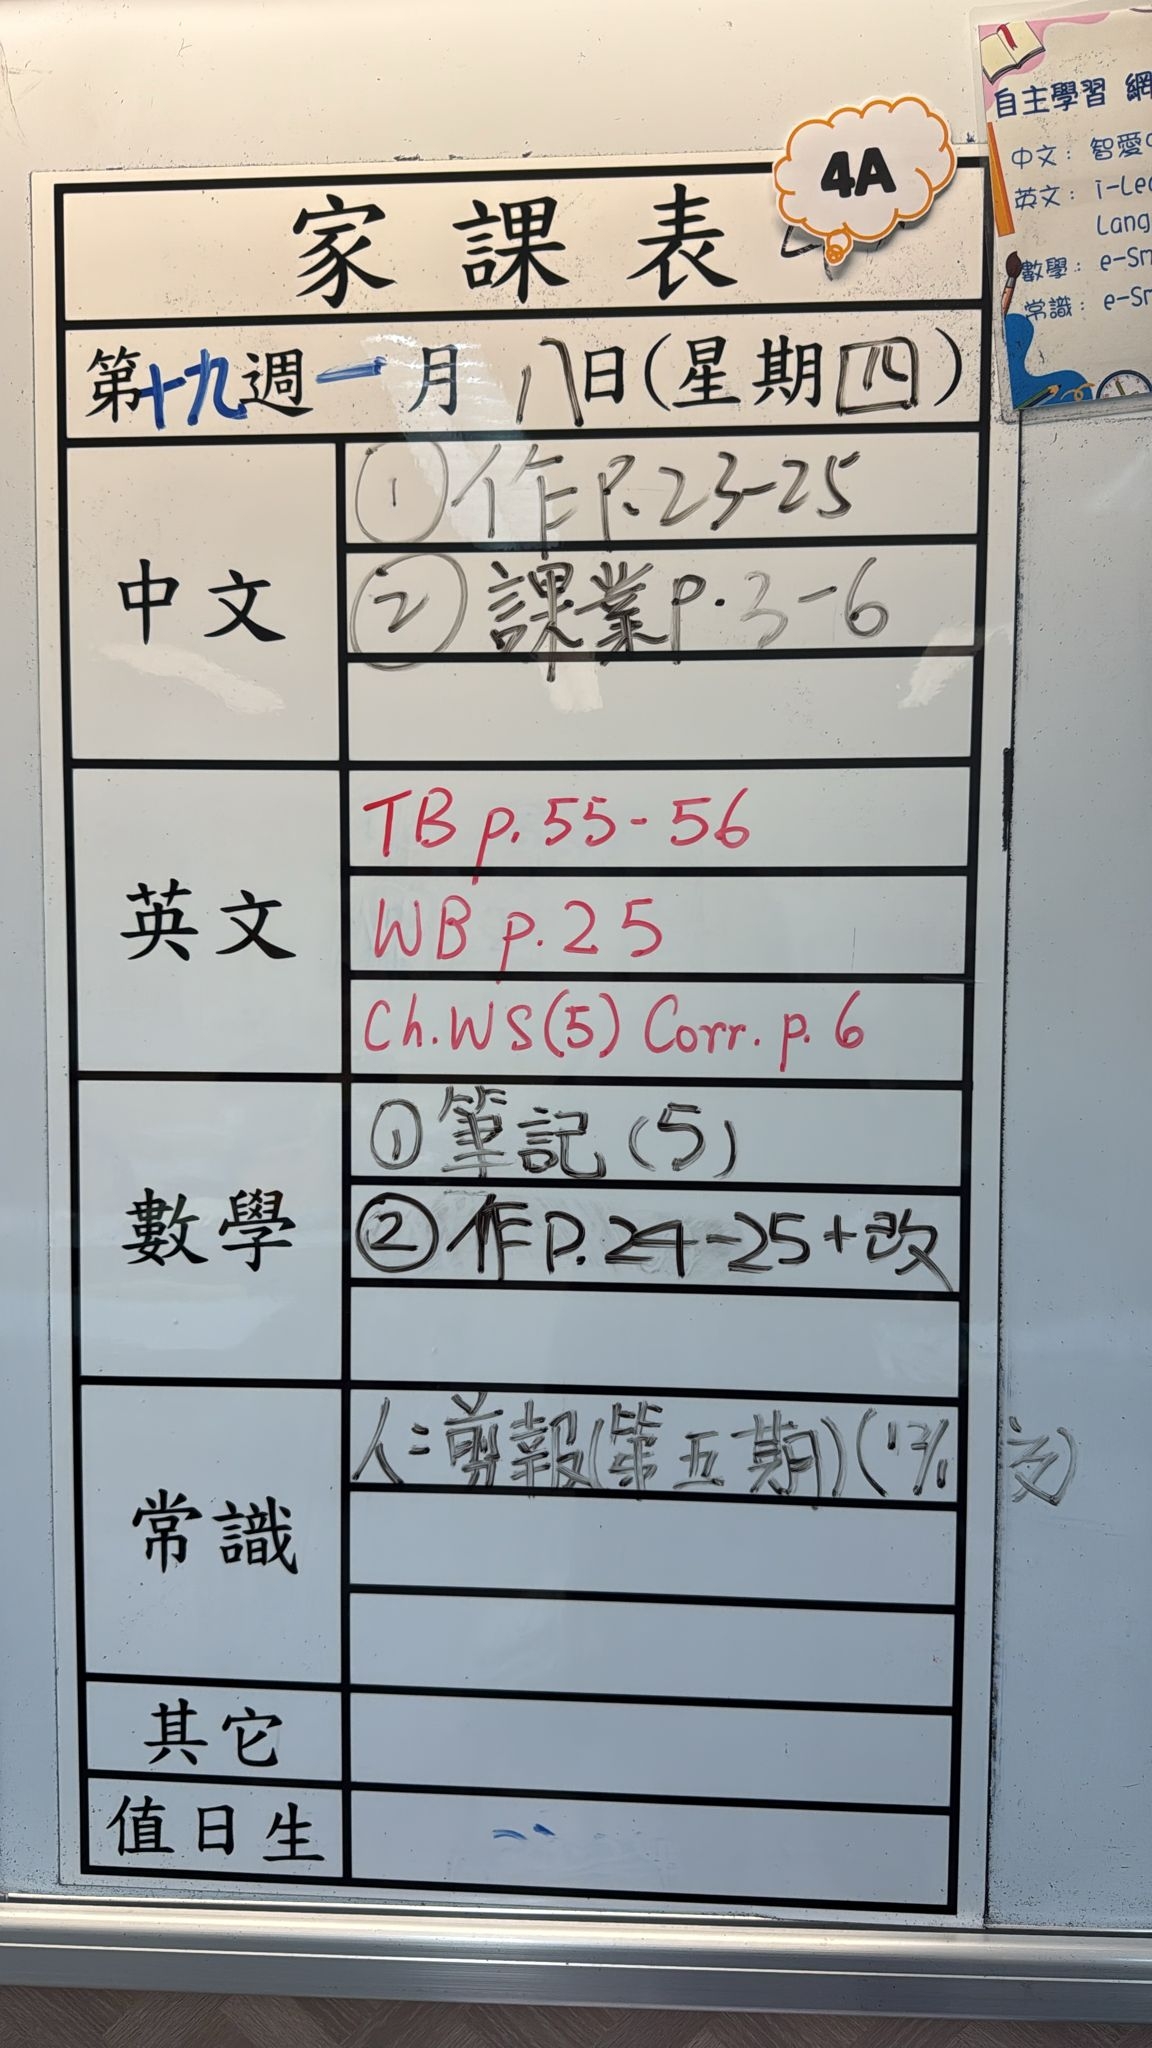 4A
家課表
第十九週一月八日(星期四)
中文
①作P.23-25
②課業p.3-6
英文
TB p.55-56
WB p.25
Ch.WS(5) Corr. p.6
數學
①筆記(5)
②作P.24-25+改
常識
人:剪報(第五期)(13/1交)
其它
值日生
自主學習 網
中文: 智愛
英文: i-Lea
Lang
數學: e-Sm
常識: e-Sm